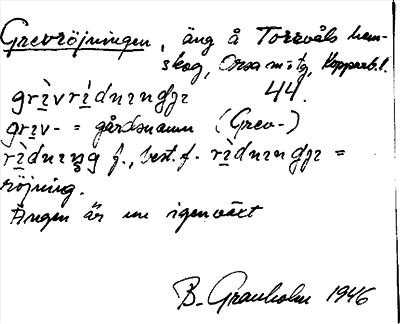 Grevröjningen, äng å Torrvåls hem-
skog, Orsa m o tg, Kopparb. l.
grìvrídnıngȷı 44.
grìv- = gårdsnamn (Grev-)
rìdnıŋg f., best. f. rìdnıngȷı =
röjning.
Ängen är nu igenväxt
B. Granholm 1946